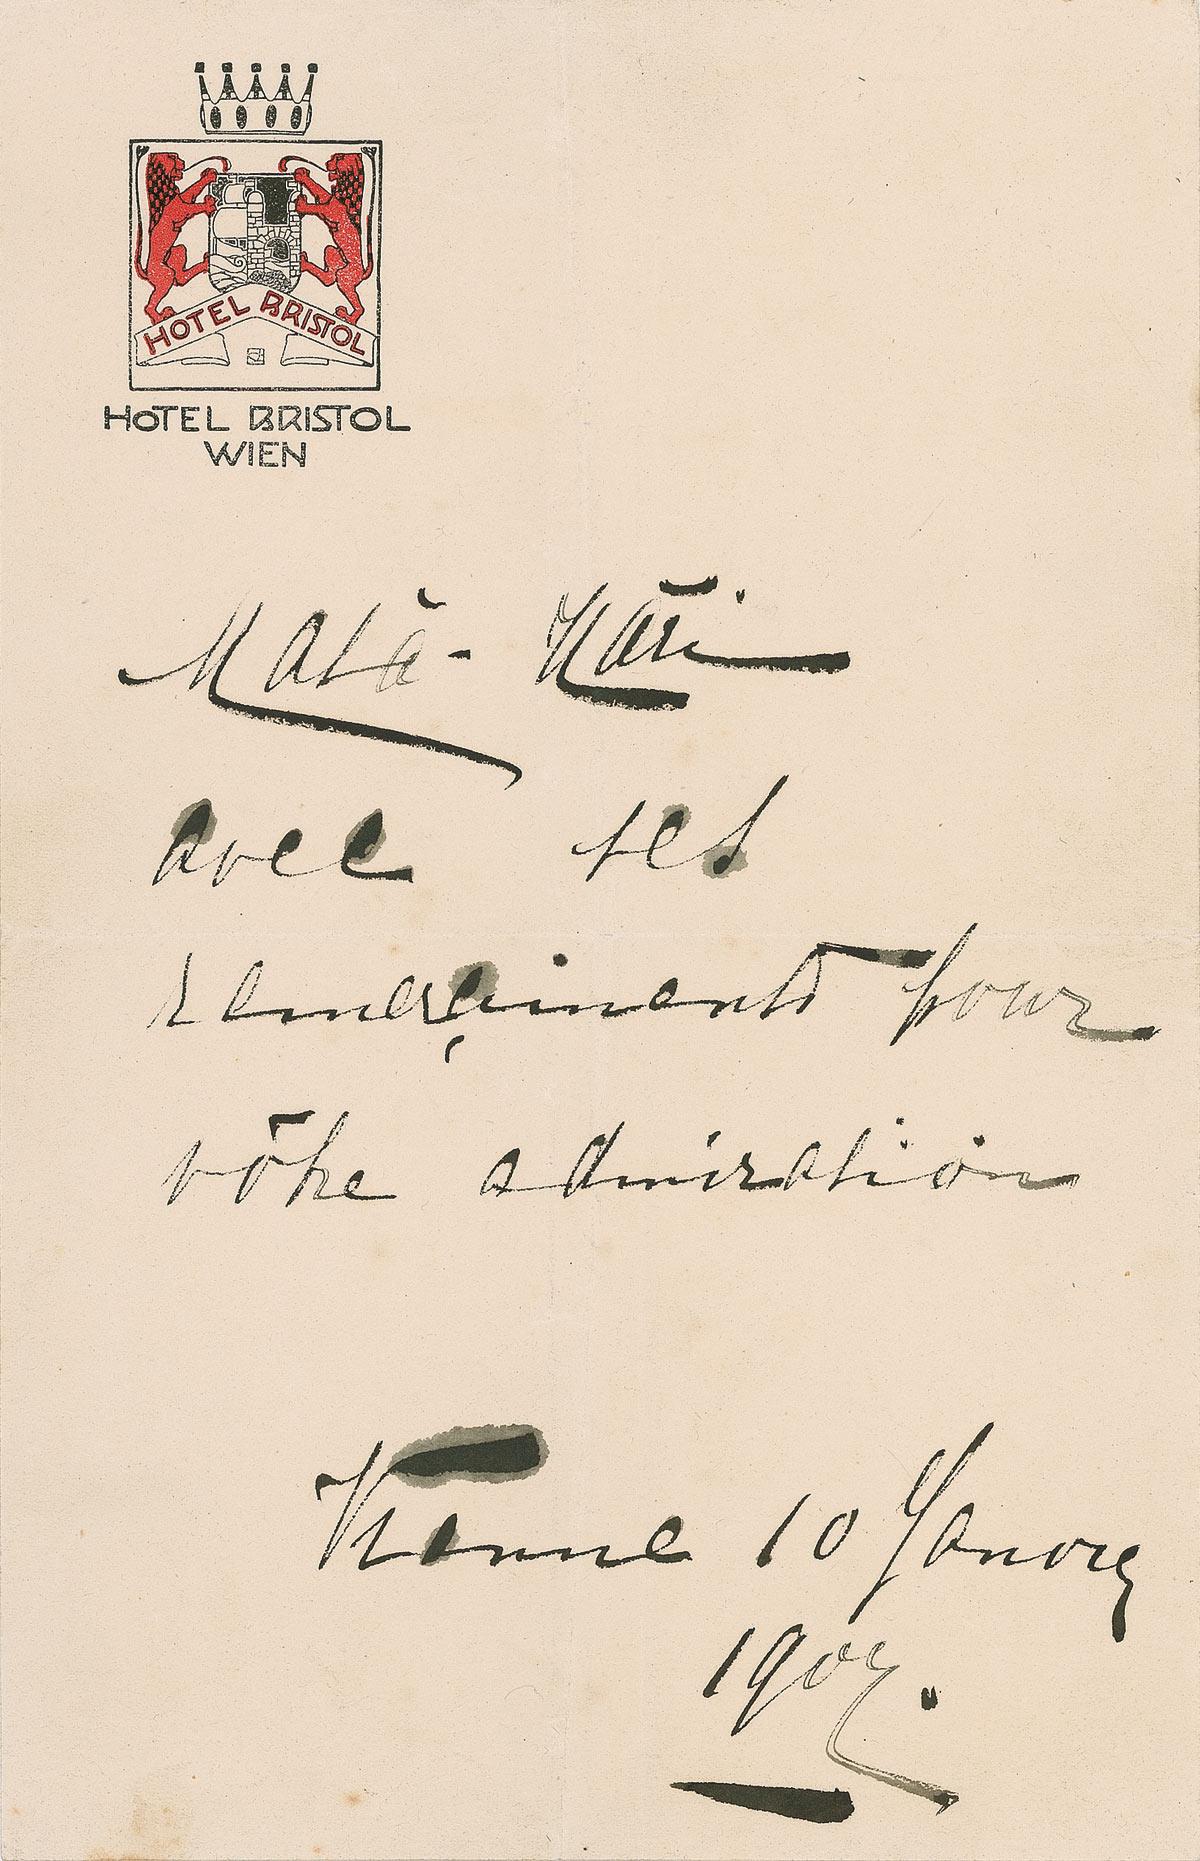 HOTEL BRISTOL
HOTEL BRISTOL
WIEN
Mată- Hări
avec ses
remerçiments pour
vôtre admiration
Vienne 10 January
1907.